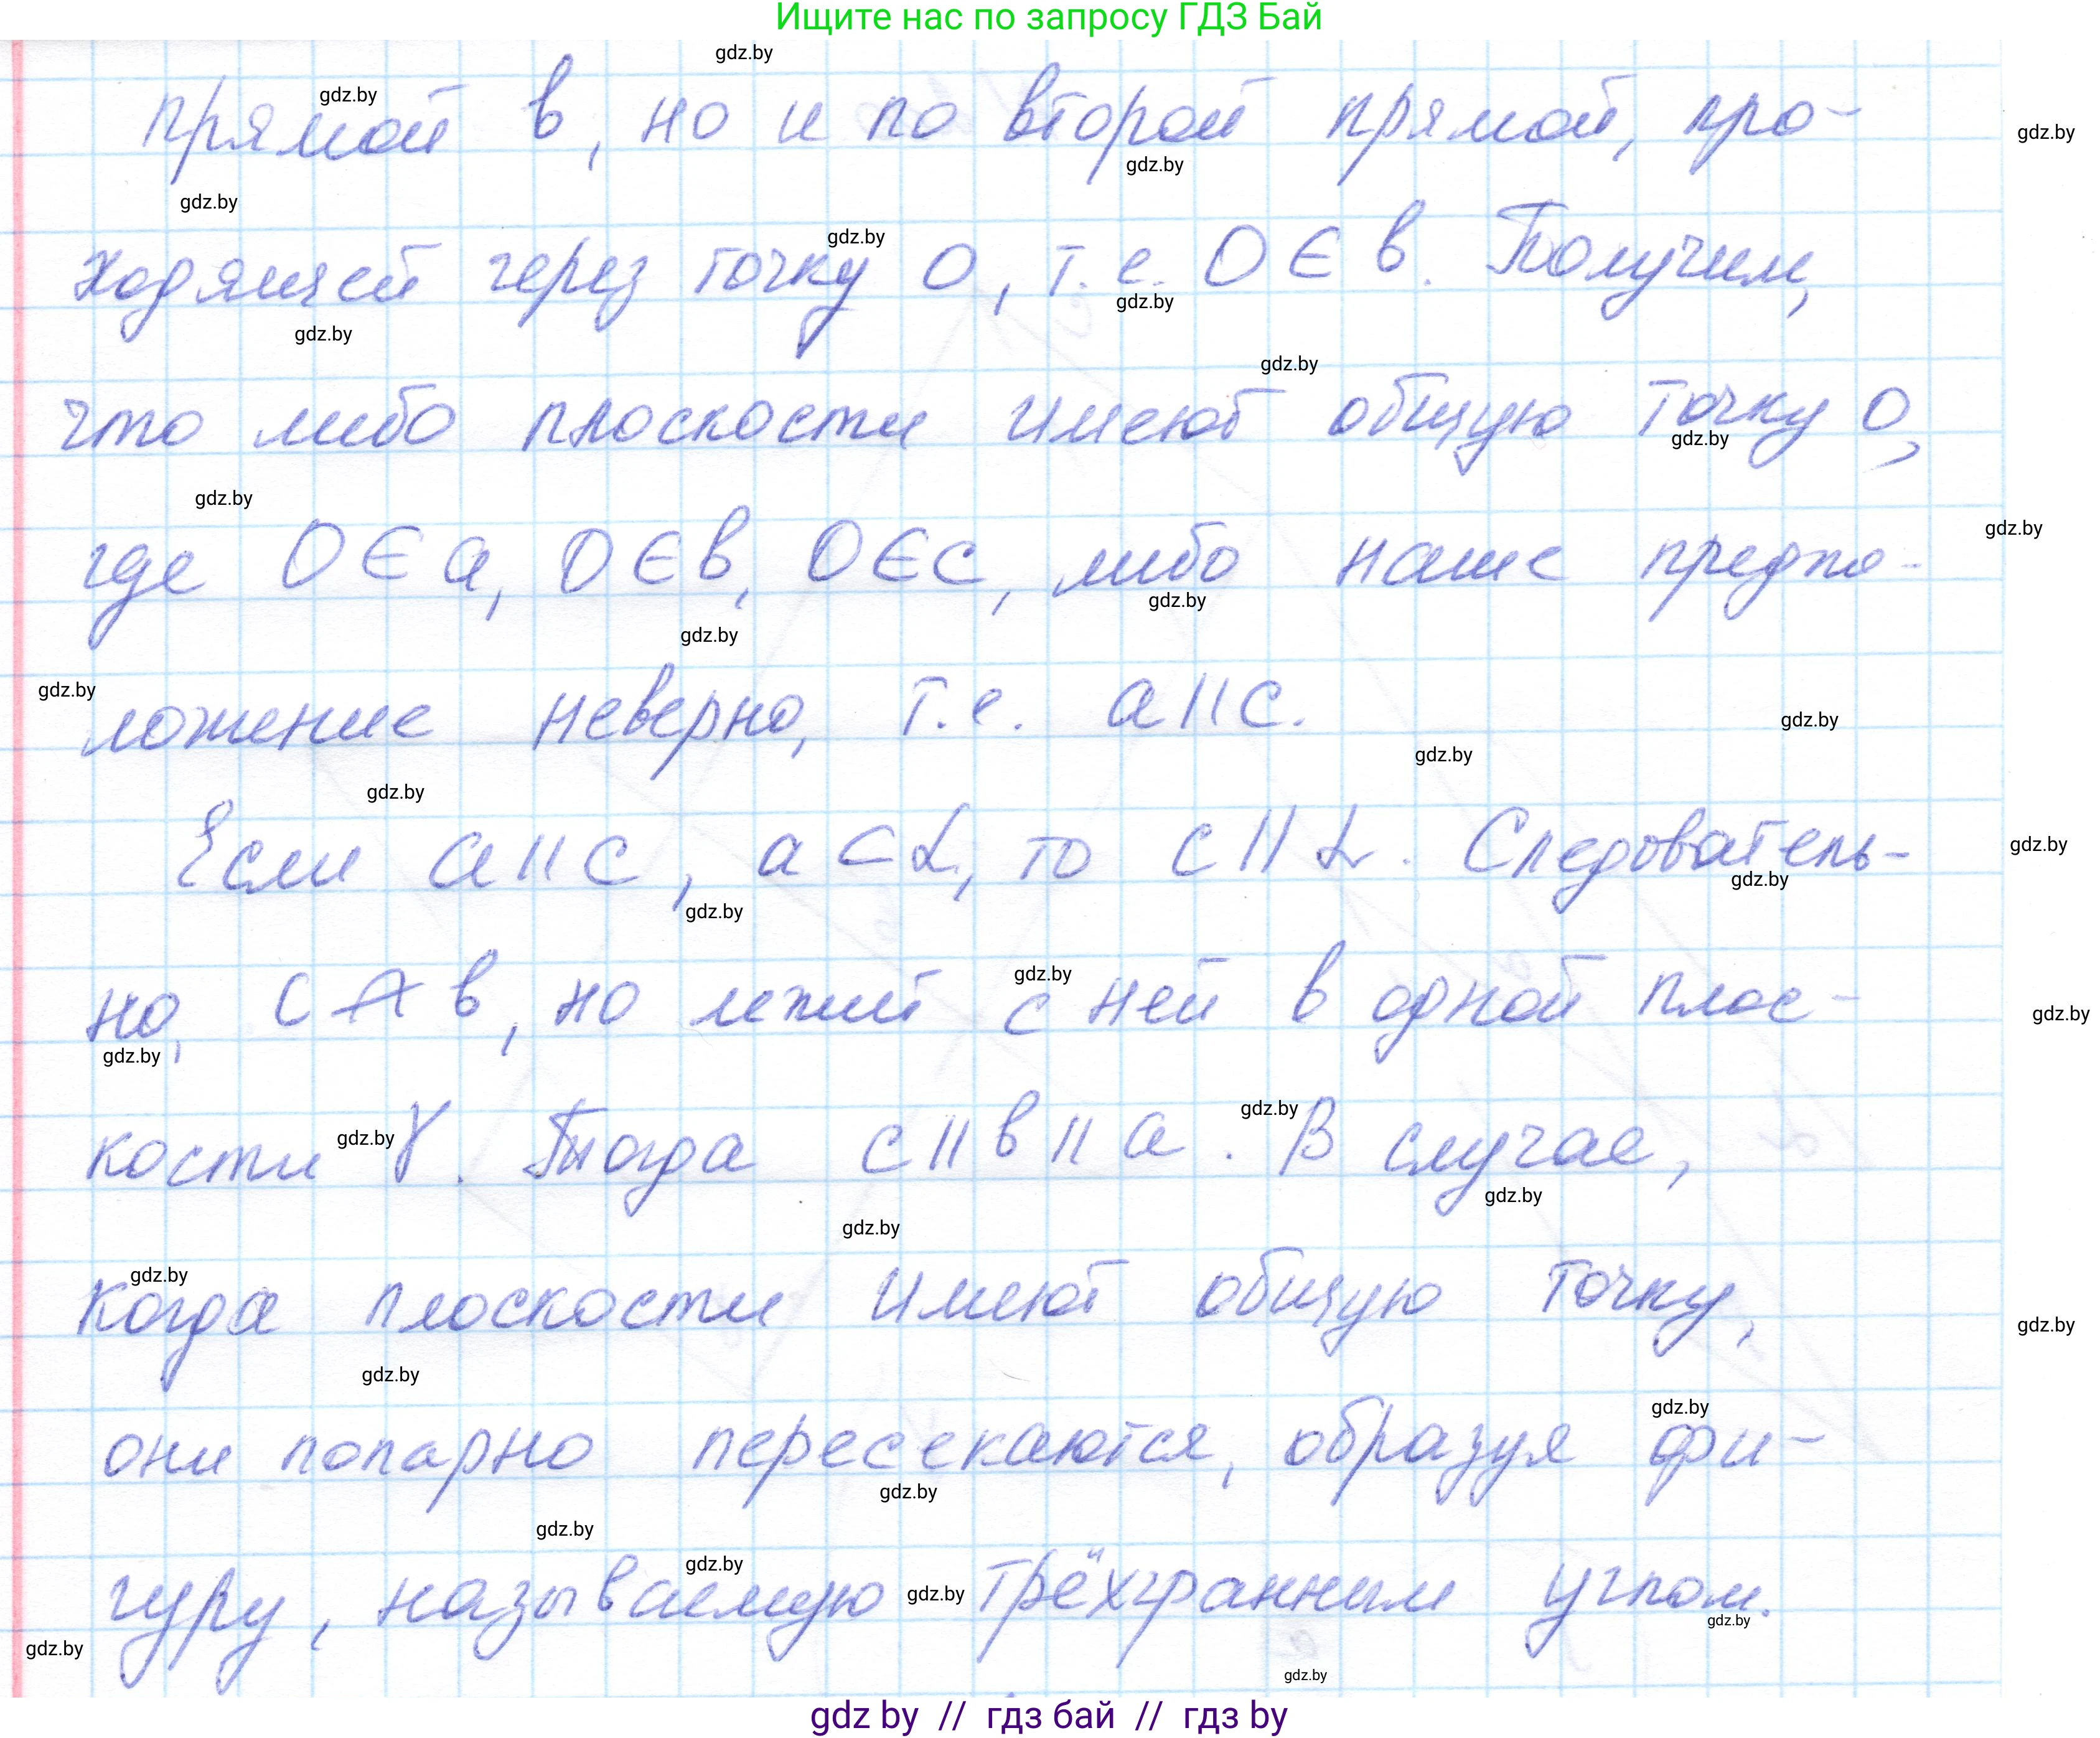 Ищите нас по запросу ГДЗ Бай
gdz.by
gdz.by
прямой в, но и по второй прямой, про-
gdz.by
gdz.by
gdz.by
gdz.by
ходящей через точку О, т.е. О ∈ в. Получим,
gdz.by
gdz.by
gdz.by
что либо плоскости имеют общую точку О,
gdz.by
gdz.by
gdz.by
где О ∈ а, О ∈ в, О ∈ с, либо наше предпо-
gdz.by
gdz.by
gdz.by
ложение неверно, т.е. а || с.
gdz.by
gdz.by
gdz.by
Если а || с, а ⊂ α, то с || α. Следователь-
gdz.by
gdz.by
gdz.by
gdz.by
но, с ∩ в, но лежит с ней в одной плос-
gdz.by
gdz.by
gdz.by
кости γ. Тогда с || в || а. В случае,
gdz.by
gdz.by
gdz.by
gdz.by
когда плоскости имеют общую точку,
gdz.by
gdz.by
gdz.by
они попарно пересекаются, образуя фи-
gdz.by
gdz.by
gdz.by
гуру, называемую gdz.by трёхгранным углом.
gdz.by
gdz.by
gdz.by
gdz by // гдз бай // гдз by